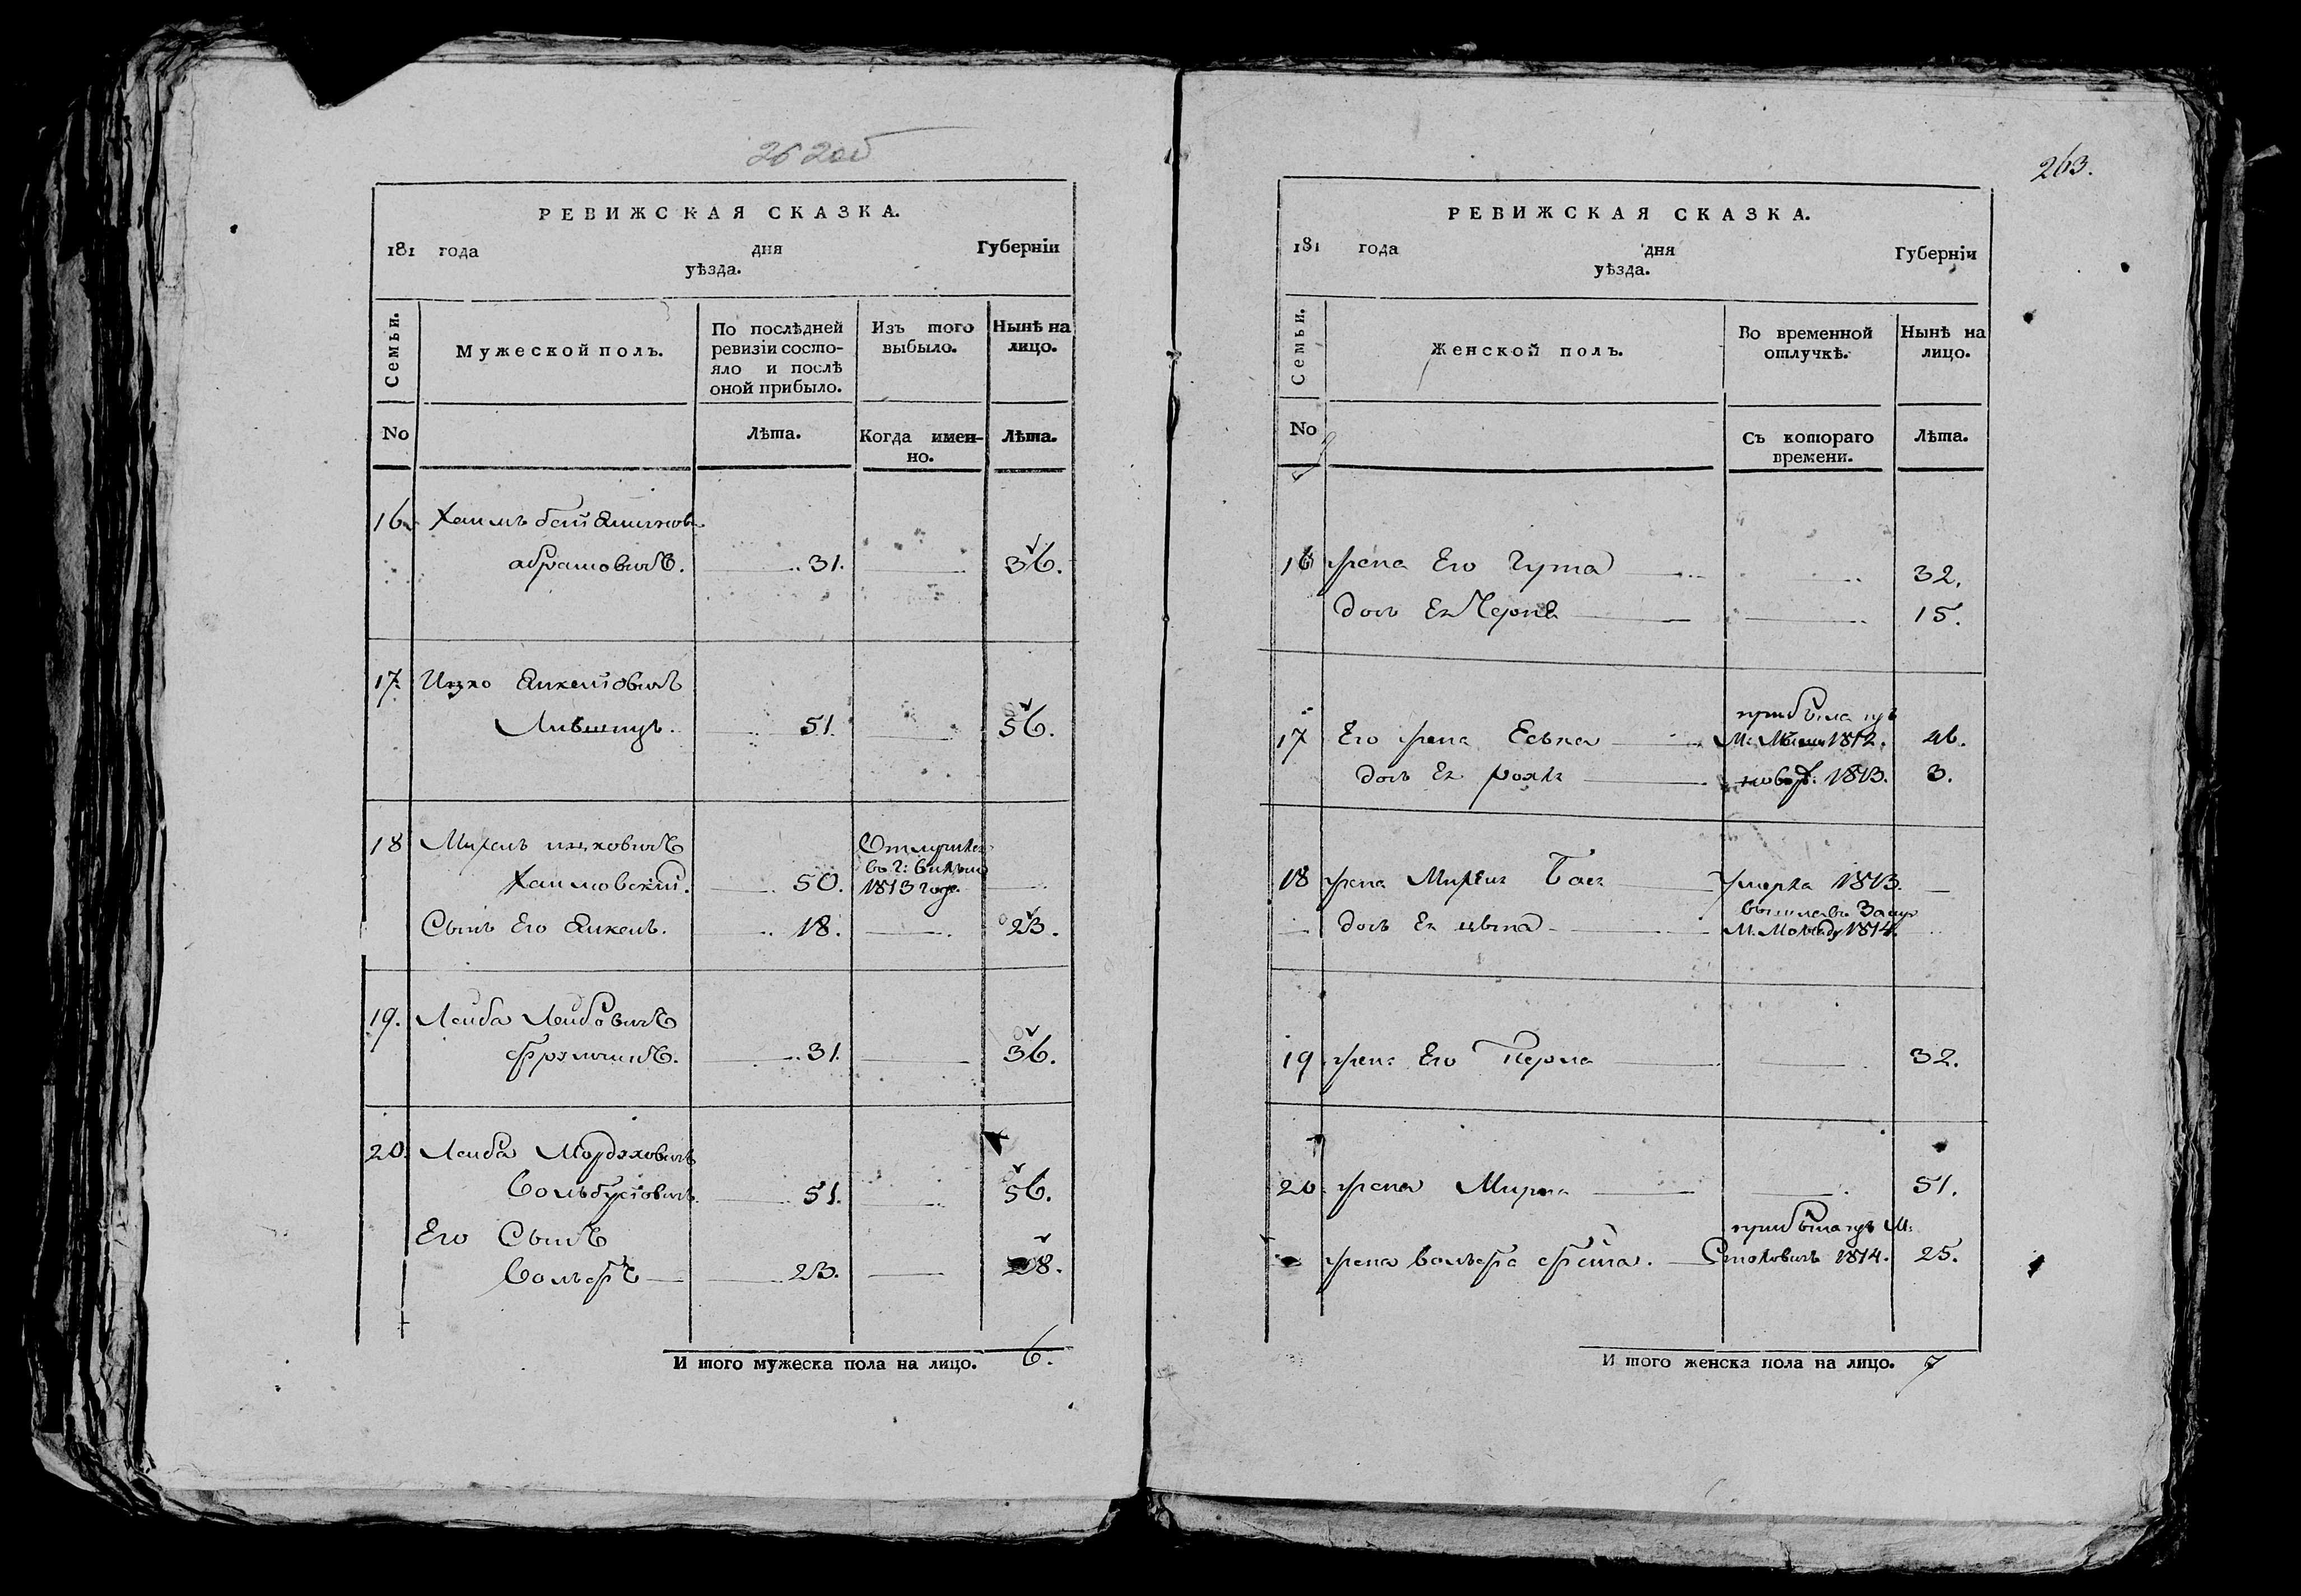 262об
РЕВИЖСКАЯ СКАЗКА.
181 года дня Губерніи
уѣзда.
Семьи.
Мужеской полъ.
По послѣдней ревизіи состо-
яло и послѣ
оной прибыло.
Изъ того
выбыло.
Нынѣ на
лицо.
No
Лѣта.
Когда имен-
но.
Лѣта.
16. Хаимъ
абрамовичъ. 31. 36.
17. Ицко Янкелювичъ
Лившицъ. 51. 56.
18 Михель ицковичъ
Хаимовскій. 50. 1813 года.
Сынъ Его Янкель. 18. 23.
19. Лейба Лейбовичъ
31. 36.
20. Лейба Мордхховичъ
51. 56.
Его Сынъ
Вольфъ 23. 28.
И того мужеска пола на лицо. 6.
263.
РЕВИЖСКАЯ СКАЗКА.
181 года дня Губерніи
уѣзда.
Семьи.
Женской полъ.
Во временной
отлучкѣ.
Нынѣ на
лицо.
No
Съ котораго
времени.
Лѣта.
16 жена Его Гута 32.
дочь Ех Черна 15.
прибыла изъ
17 Его жена Еська М: 1812. 46.
дочь Ех рохля 1813. 3.
18 жена Михеля Бася умерла 1813.
вышла въ Замуж
дочь Ех цвѣта М. 1814.
19 жена Его Перла 32.
20. жена Мирка 51.
прибыла изъ М:
жена Вольфа фейга. Столовичъ 1814. 25.
И того женска пола на лицо. 7